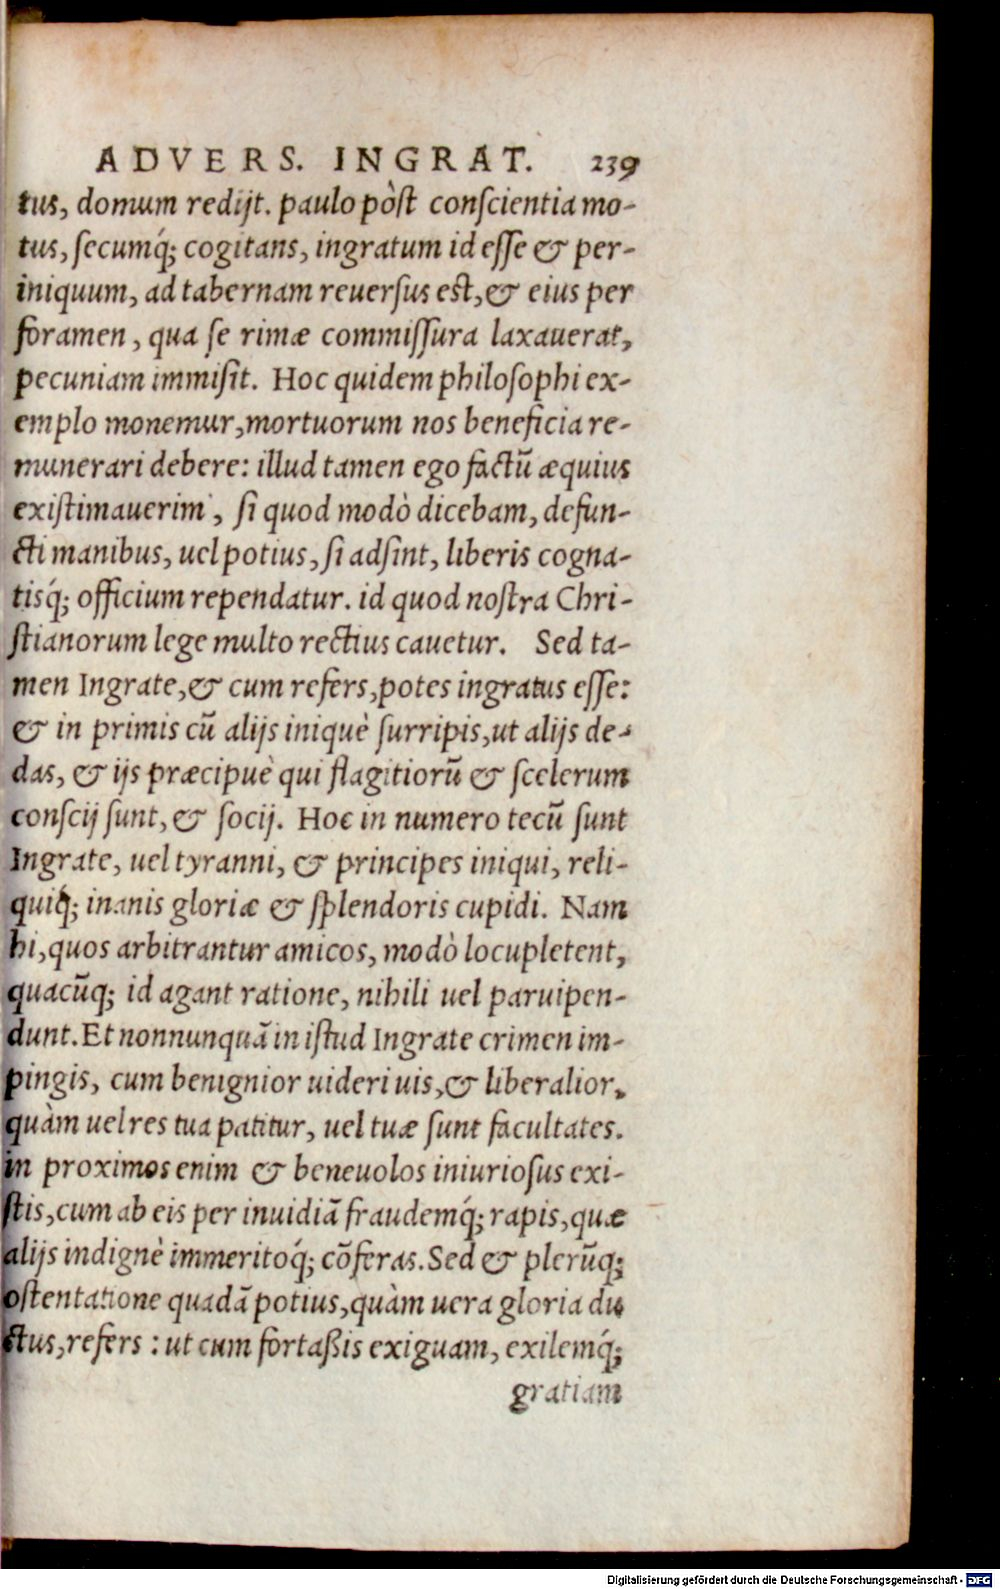 ADVERS. INGRAT. 239
tus, domum redijt. paulo pòſt conſcientia mo-
tus, ſecumq́; cogitans, ingratum id eſſe & per-
iniquum, ad tabernam reuerſus est, & eius per
foramen, qua ſe rimæ commiſſura laxauerat,
pecuniam immiſit. Hoc quidem philoſophi ex-
emplo monemur, mortuorum nos beneficia re-
munerari debere: illud tamen ego factū æquius
exiſtimauerim, ſi quod modò dicebam, defun-
cti manibus, uel potius, ſi adſint, liberis cogna-
tisq́; officium rependatur. id quod noſtra Chri-
ſtianorum lege multo rectius cauetur. Sed ta-
men Ingrate, & cum refers, potes ingratus eſſe:
& in primis cū alijs iniquè ſurripis, ut alijs de-
das, & ijs præcipuè qui flagitiorū & ſcelerum
conſcij ſunt, & ſocij. Hoc in numero tecū ſunt
Ingrate, uel tyranni, & principes iniqui, reli-
quiq́; inanis gloriæ & ſplendoris cupidi. Nam
hi, quos arbitrantur amicos, modò locupletent,
quacūq; id agant ratione, nihili uel paruipen-
dunt. Et nonnunquā in iſtud Ingrate crimen im-
pingis, cum benignior uideri uis, & liberalior,
quàm uel res tua patitur, uel tuæ ſunt facultates.
in proximos enim & beneuolos iniurioſus exi-
ſtis, cum ab eis per inuidiā fraudemq́; rapis, quæ
alijs indignè immeritoq́; cōferas. Sed & plerūq;
oſtentatione quadā potius, quàm uera gloria du
ctus, refers: ut cum fortaßis exiguam, exilemq́;
gratiam
Digitalisierung gefördert durch die Deutsche Forschungsgemeinschaft - DFG